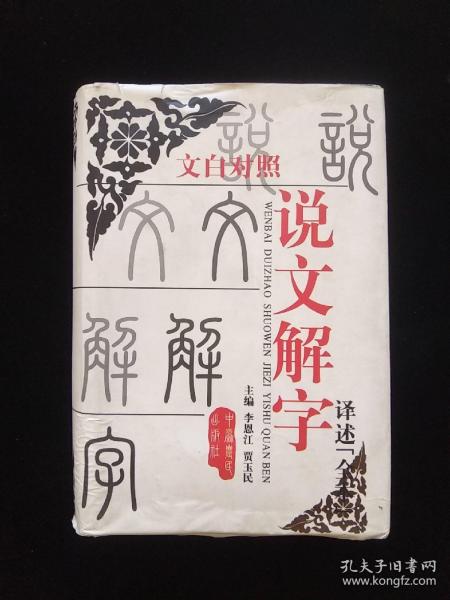 文白对照
说文解字
WENBAI DUIZHAO SHUOWEN JIEZI YISHU QUAN BEN
译述「全本
主编 李恩江 贾玉民
中原农民出版社
說
說
文
文
解
解
字
孔夫子旧书网
www.kongfz.com